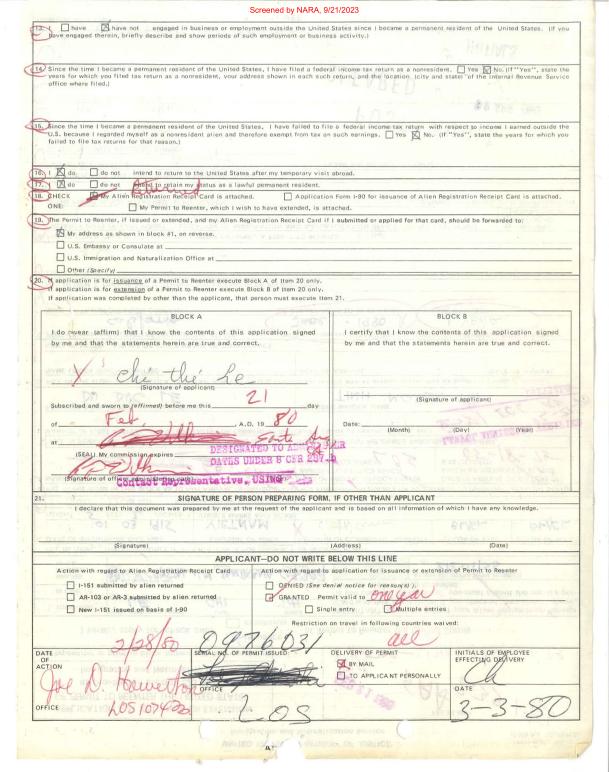 Screened by NARA, 9/21/2023
13. I have have not engaged in business or employment outside the United States since I became a permanent resident of the United States. (If you
have engaged therein, briefly describe and show periods of such employment or business activity.)
14. Since the time I became a permanent resident of the United States, I have filed a federal income tax return as a nonresident. Yes No. (If "Yes", state the
years for which you filed tax return as a nonresident, your address shown in each such return, and the location (city and state) of the Internal Revenue Service
office where filed.)
15. Since the time I became a permanent resident of the United States, I have failed to file a federal income tax return with respect to income I earned outside the
U.S. because I regarded myself as a nonresident alien and therefore exempt from tax on such earnings. Yes No. (If "Yes", state the years for which you
failed to file tax returns for that reason.)
16. I do do not intend to return to the United States after my temporary visit abroad.
17. I do do not intend to retain my status as a lawful permanent resident.
returned
18. CHECK My Alien Registration Receipt Card is attached. Application Form I-90 for issuance of Alien Registration Receipt Card is attached.
ONE: My Permit to Reenter, which I wish to have extended, is attached.
19. The Permit to Reenter, if issued or extended, and my Alien Registration Receipt Card if I submitted or applied for that card, should be forwarded to:
My address as shown in block #1, on reverse.
U.S. Embassy or Consulate at
U.S. Immigration and Naturalization Office at
Other (Specify)
20. If application is for issuance of a Permit to Reenter execute Block A of Item 20 only.
If application is for extension of a Permit to Reenter execute Block B of Item 20 only.
If application was completed by other than the applicant, that person must execute Item 21.
BLOCK A
I do swear (affirm) that I know the contents of this application signed
by me and that the statements herein are true and correct.
X chi thé Le
(Signature of applicant)
Subscribed and sworn to (affirmed) before me this 21 day
of Feb. , A.D, 19 80
at Santa Ana
(SEAL) My commission expires CA
DESIGNATED TO
DATES UNDER 8 CFR 287.
(Signature of officer
Contact Representative, USINS
BLOCK B
I certify that I know the contents of this application signed
by me and that the statements herein are true and correct.
(Signature of applicant)
Date:
(Month) (Day) (Year)
21. SIGNATURE OF PERSON PREPARING FORM, IF OTHER THAN APPLICANT
I declare that this document was prepared by me at the request of the applicant and is based on all information of which I have any knowledge.
(Signature) (Address) (Date)
APPLICANT—DO NOT WRITE BELOW THIS LINE
Action with regard to Alien Registration Receipt Card
I-151 submitted by alien returned
AR-103 or AR-3 submitted by alien returned
New I-151 issued on basis of I-90
Action with regard to application for issuance or extension of Permit to Reenter
DENIED (See denial notice for reason(s).)
GRANTED Permit valid to one year
Single entry Multiple entries
Restriction on travel in following countries waived:
all
DATE OF ACTION 2/28/80
Joe D. Howerton
OFFICE LOS 1074
SERIAL NO. OF PERMIT ISSUED: 0976031
OFFICE
LOS
DELIVERY OF PERMIT
BY MAIL
TO APPLICANT PERSONALLY
INITIALS OF EMPLOYEE
EFFECTING DELIVERY
DATE
3-3-80